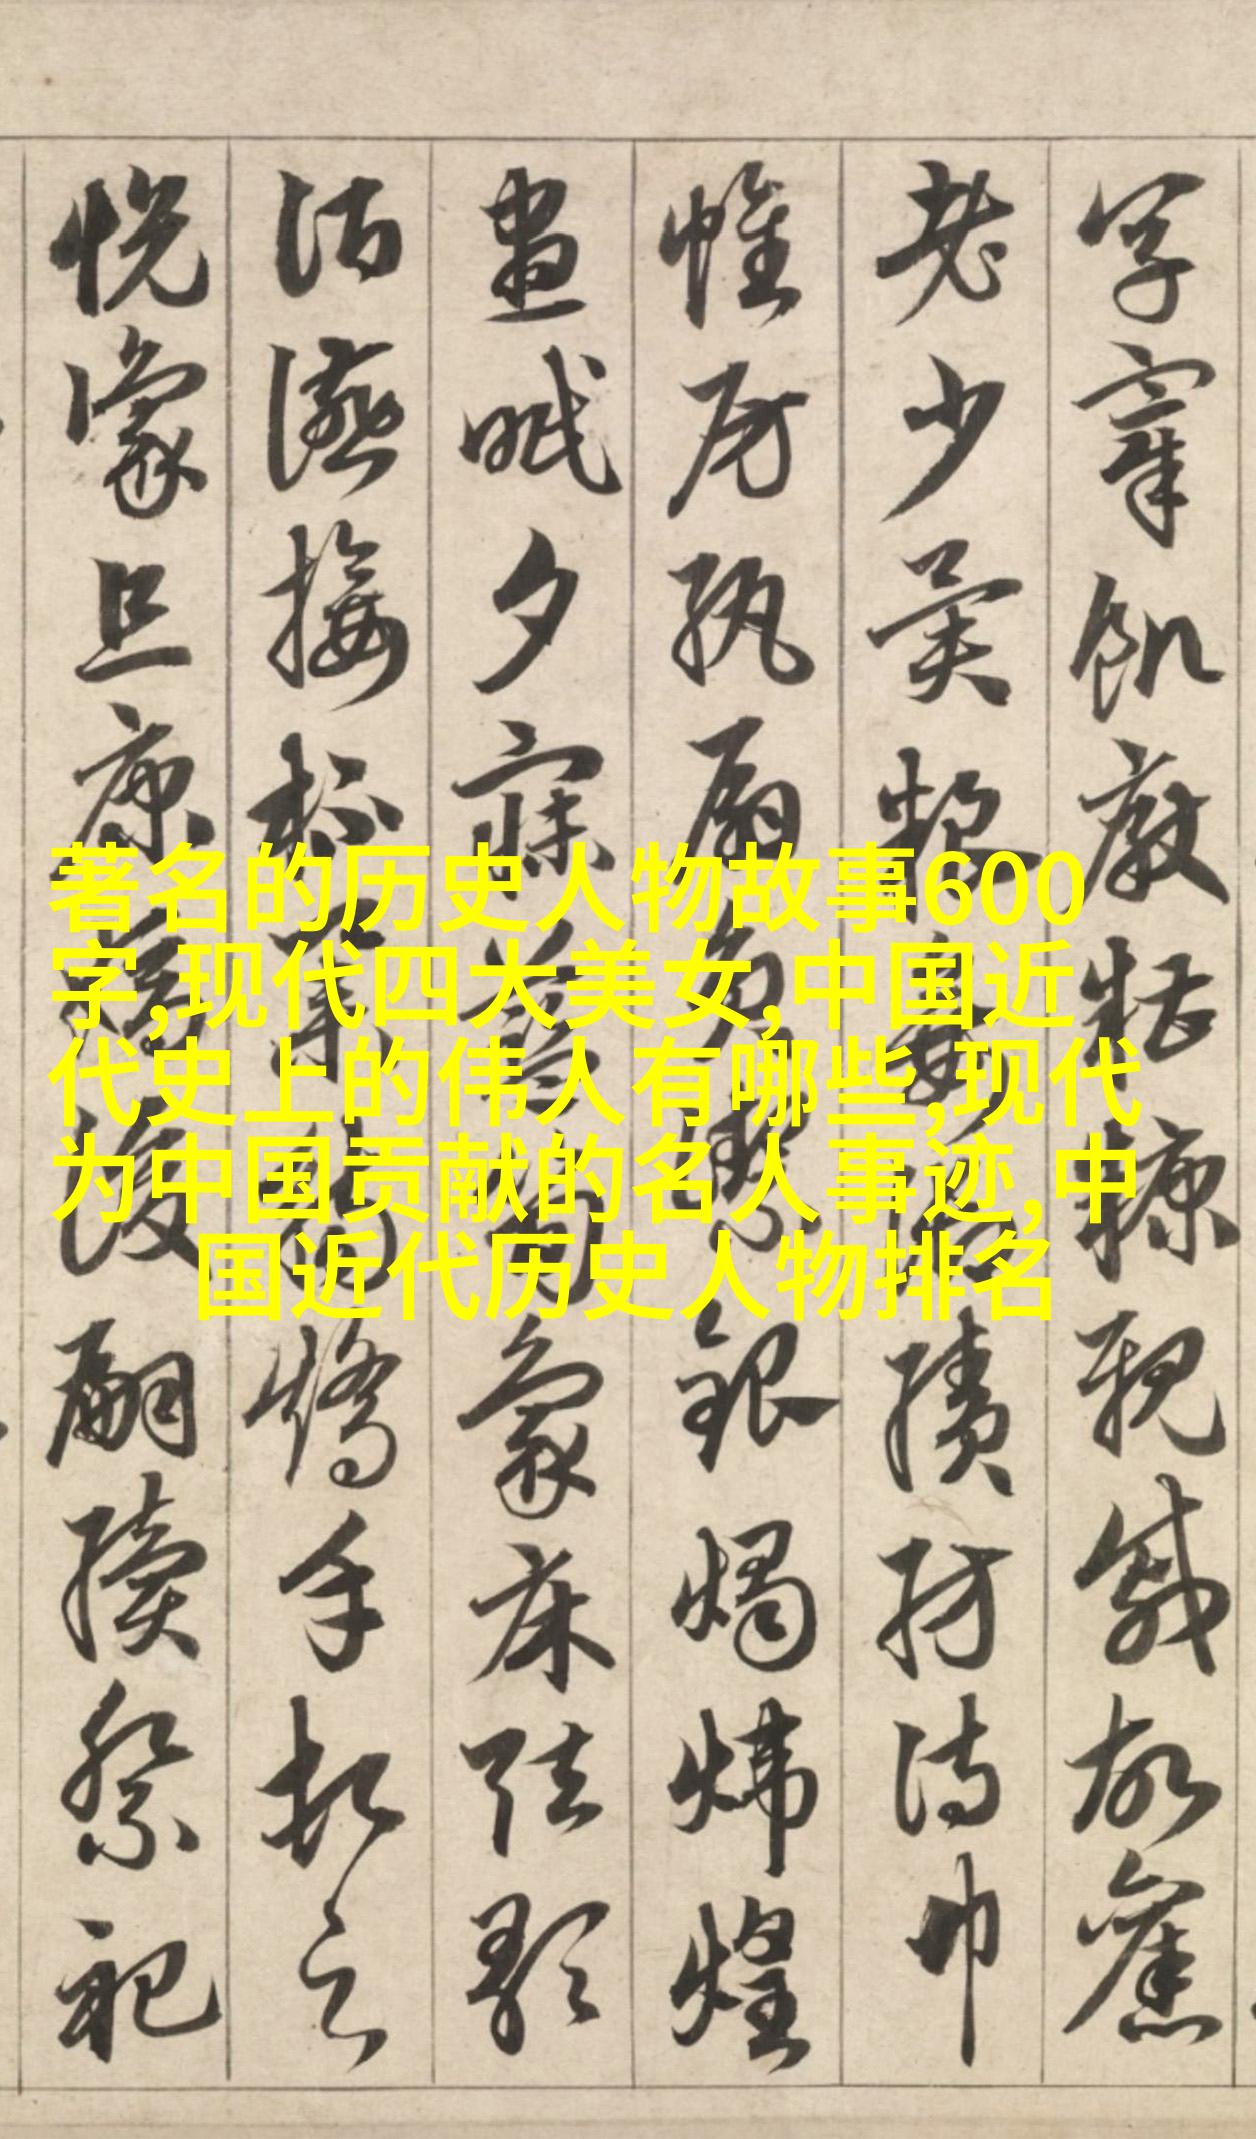 宰飢厭糟糠親戚故舊
老少異粮妾御績紡侍巾
帷房紈扇員潔銀燭煒煌
晝眠夕寐藍笋象床弦歌
酒讌接杯舉觴矯手頓足
悅豫且康嫡後嗣續祭祀
著名的历史人物故事600
字,现代四大美女,中国近
代史上的伟人有哪些,现代
为中国贡献的名人事迹,中
国近代历史人物排名